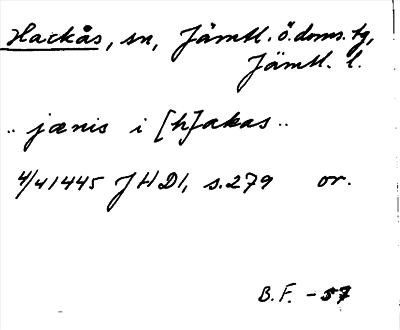 Hackås, sn, Jämtl. ö. doms. tg,
Jämtl. l.
.. jænis i [h]akas ..
4/4 1445 JHD1, s. 279 or.
B.F. -57